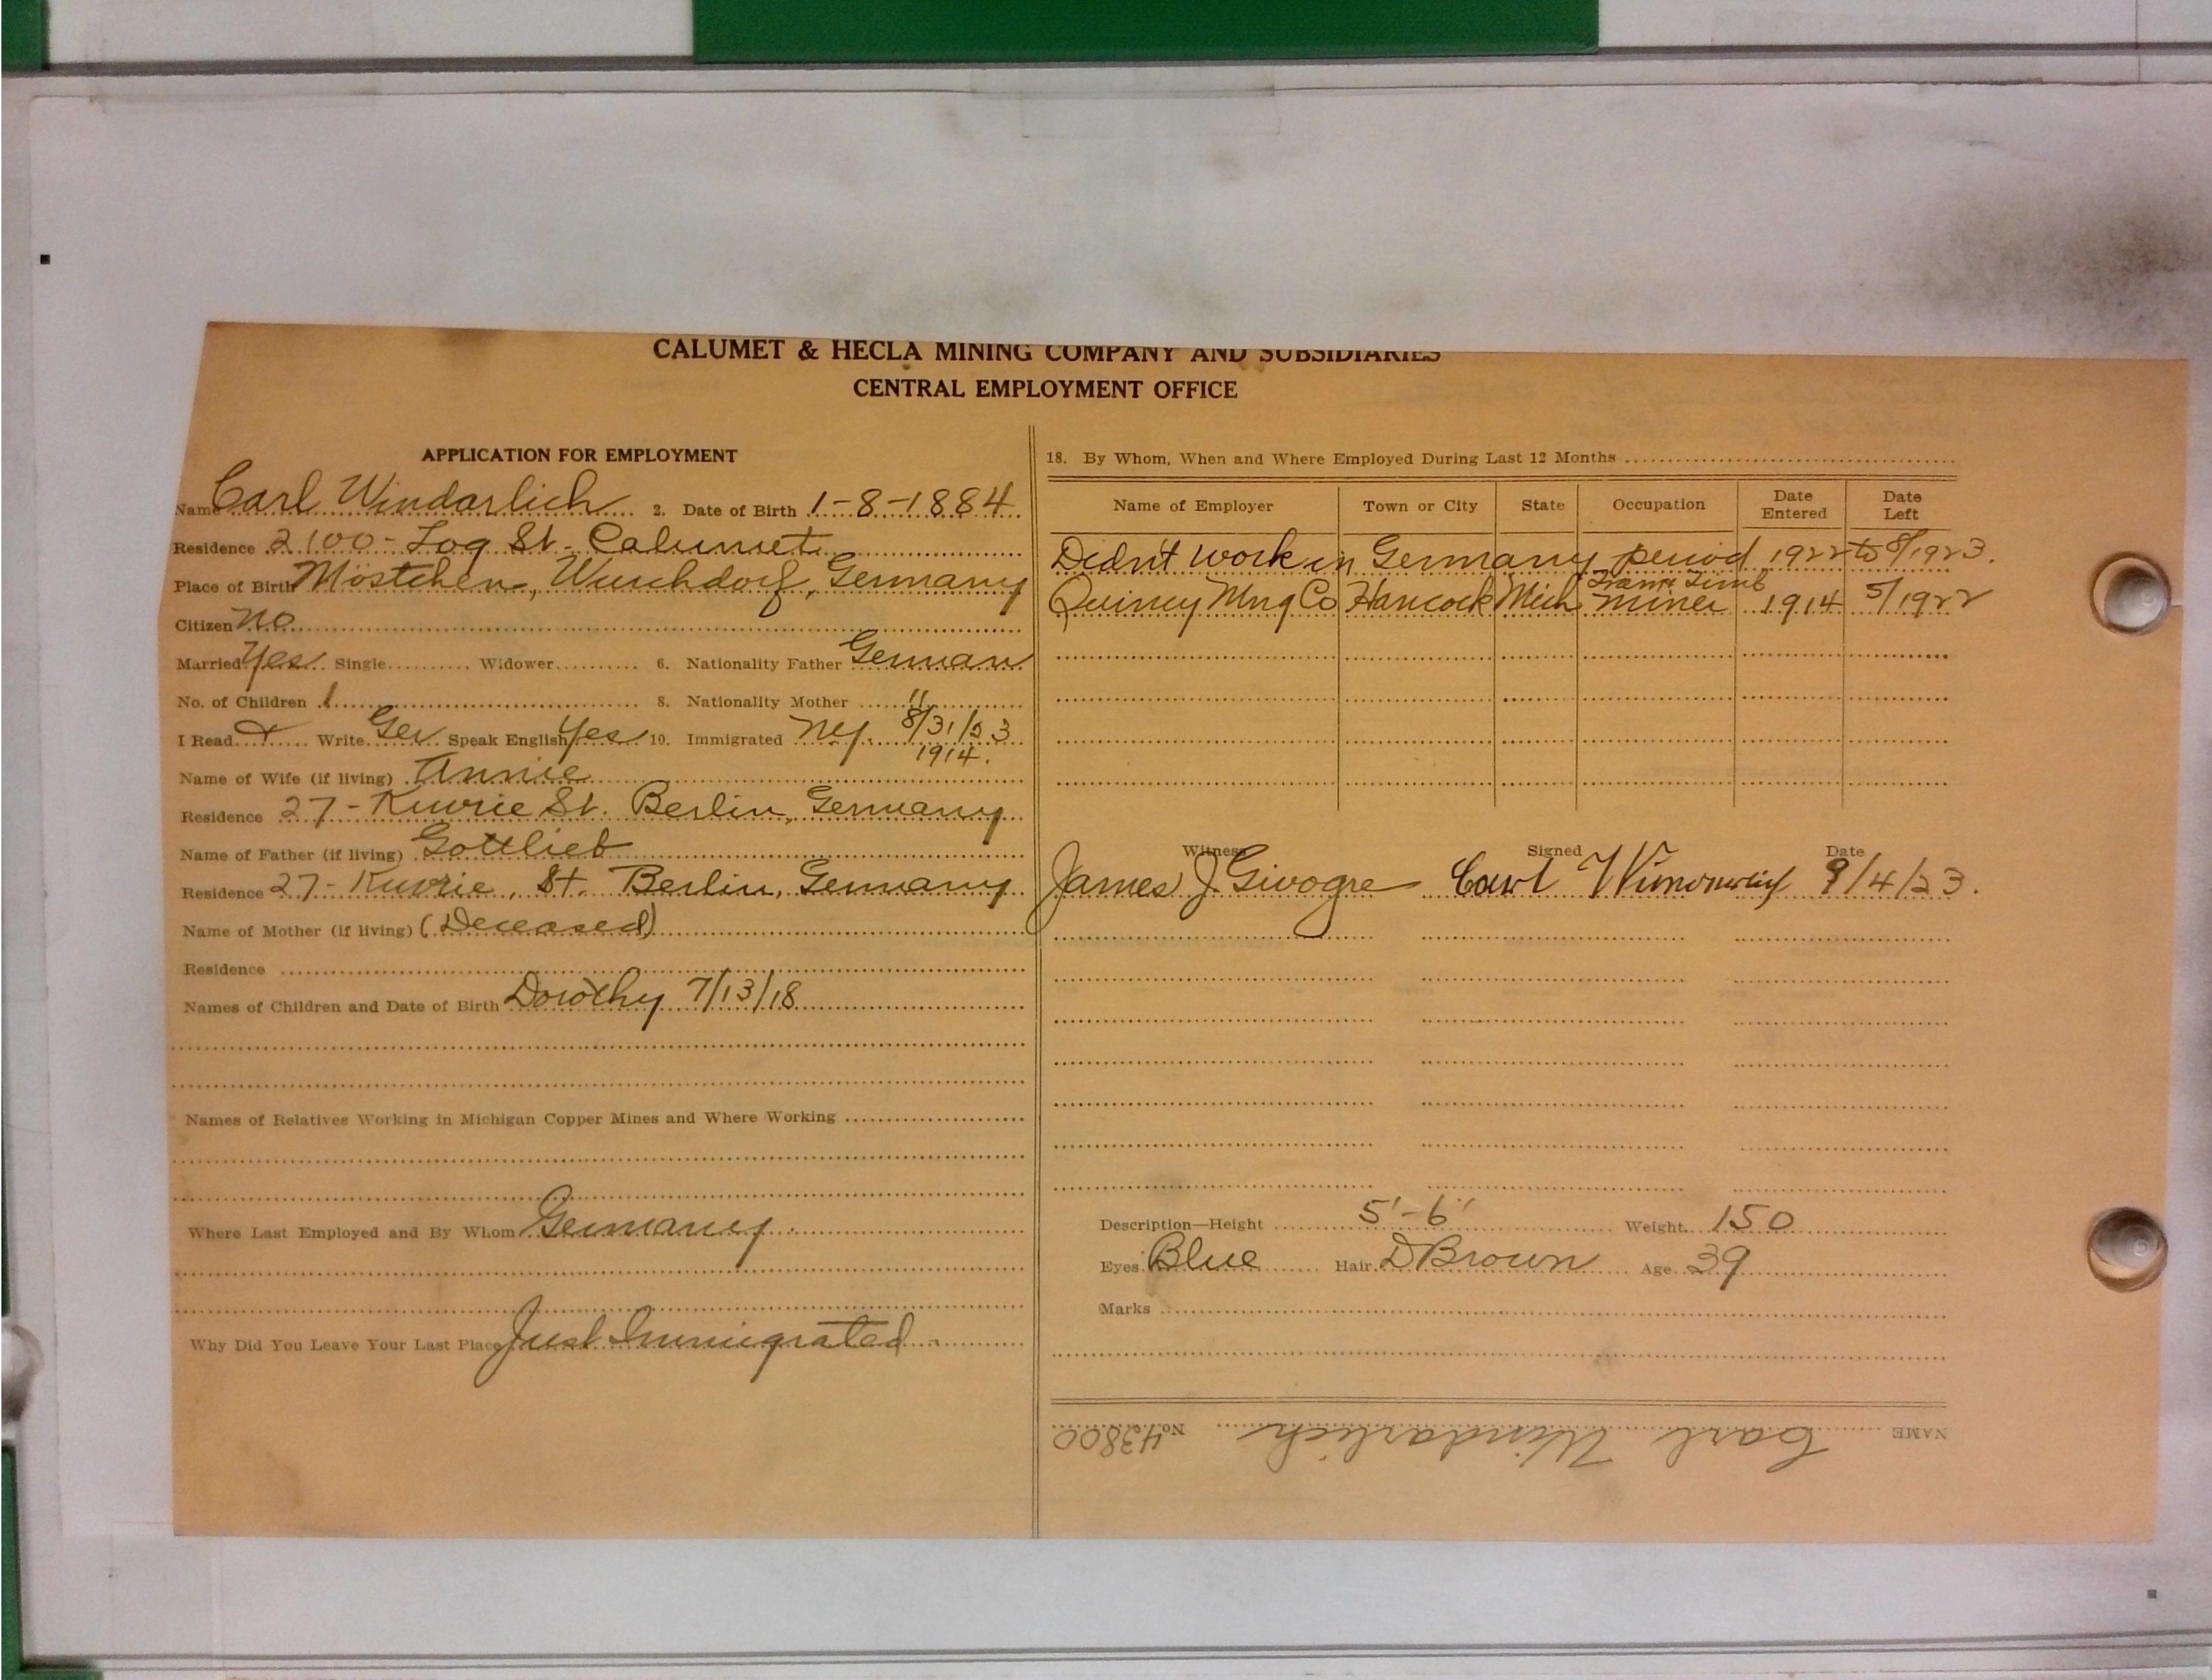 CALUMET & HECLA MINING COMPANY AND SUBSIDIARIES
CENTRAL EMPLOYMENT OFFICE
APPLICATION FOR EMPLOYMENT
Name Carl Windarlich 2. Date of Birth 1-8-1884
Residence 2100 - Log St. Calumet
Place of Birth Möstchen, Wuschdorf, Germany
Citizen No
Married Yes Single Widower 6. Nationality Father German
No. of Children 1 8. Nationality Mother "
I Read + Write Ger Speak English Yes 10. Immigrated NY. 8/31/23
1914.
Name of Wife (if living) Annie
Residence 27 - St. Berlin, Germany
Name of Father (if living) Gottlieb
Residence 27 - St. Berlin, Germany
Name of Mother (if living) (Deceased)
Residence
Names of Children and Date of Birth Dorothy 7/13/18
Names of Relatives Working in Michigan Copper Mines and Where Working
Where Last Employed and By Whom Germany
Why Did You Leave Your Last Place Just Immigrated
18. By Whom, When and Where Employed During Last 12 Months
Name of Employer Town or City State Occupation Date Entered Date Left
Didn't work in Germany period 1922 to 8/1923.
Quincy Mng Co Hancock Mich Tram & Timb miner 1914 5/1922
Witness Signed Date
James J. Givogre Carl 9/4/23.
Description—Height 5'-6" Weight 150
Eyes Blue Hair D Brown Age 39
Marks
NAME Carl Windarlich No. 43800